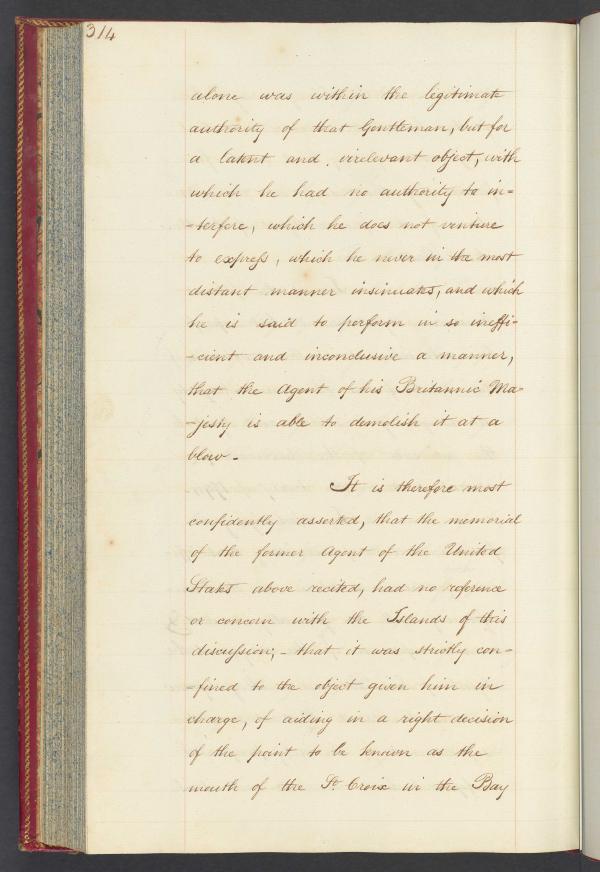 314
alone was within the legitimate
authority of that Gentleman, but for
a latent and irrelevant object, with
which he had no authority to in=
=terfere, which he does not venture
to express, which he never in the most
distant manner insinuates, and which
he is said to perform in so ineffi-
-cient and inconclusive a manner,
that the Agent of his Britannic Ma=
-jesty is able to demolish it at a
blow.
It is therefore most
confidently asserted, that the memorial
of the former Agent of the United
States above recited, had no reference
or concern with the Islands of this
discussion; - that it was strictly con-
-fined to the object given him in
charge, of aiding in a right decision
of the point to be known as the
mouth of the St. Croix in the Bay